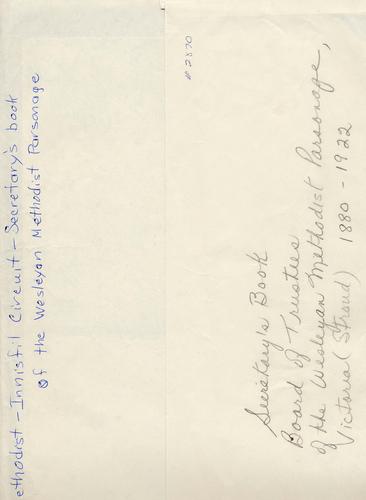 ethodist - Innisfil Circuit - Secretary's book
of the Wesleyan Methodist Parsonage
# 2870
Secretary's Book
Board of Trustees
of the Wesleyan Methodist Parsonage,
Victoria (Stroud) 1880 - 1922